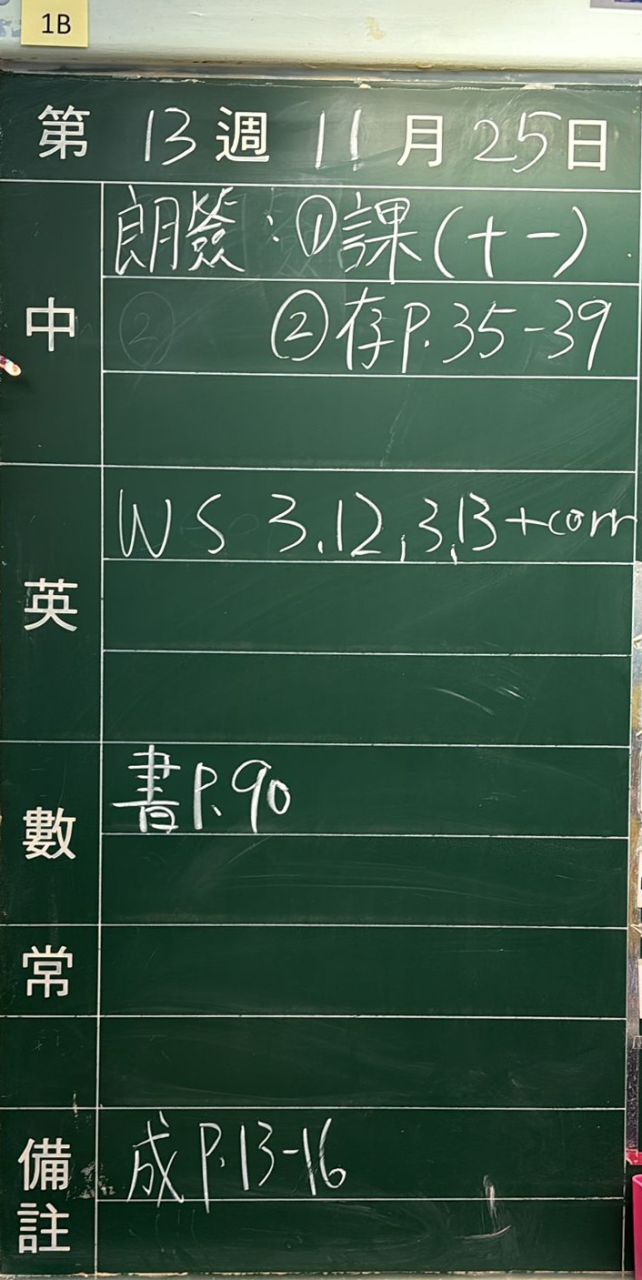 1B
第 13 週 11 月 25 日
中
朗簽:①課(十一)
②存P.35-39
英
WS 3.12,3.13+corr
數
書P.90
常
備註
成P.13-16